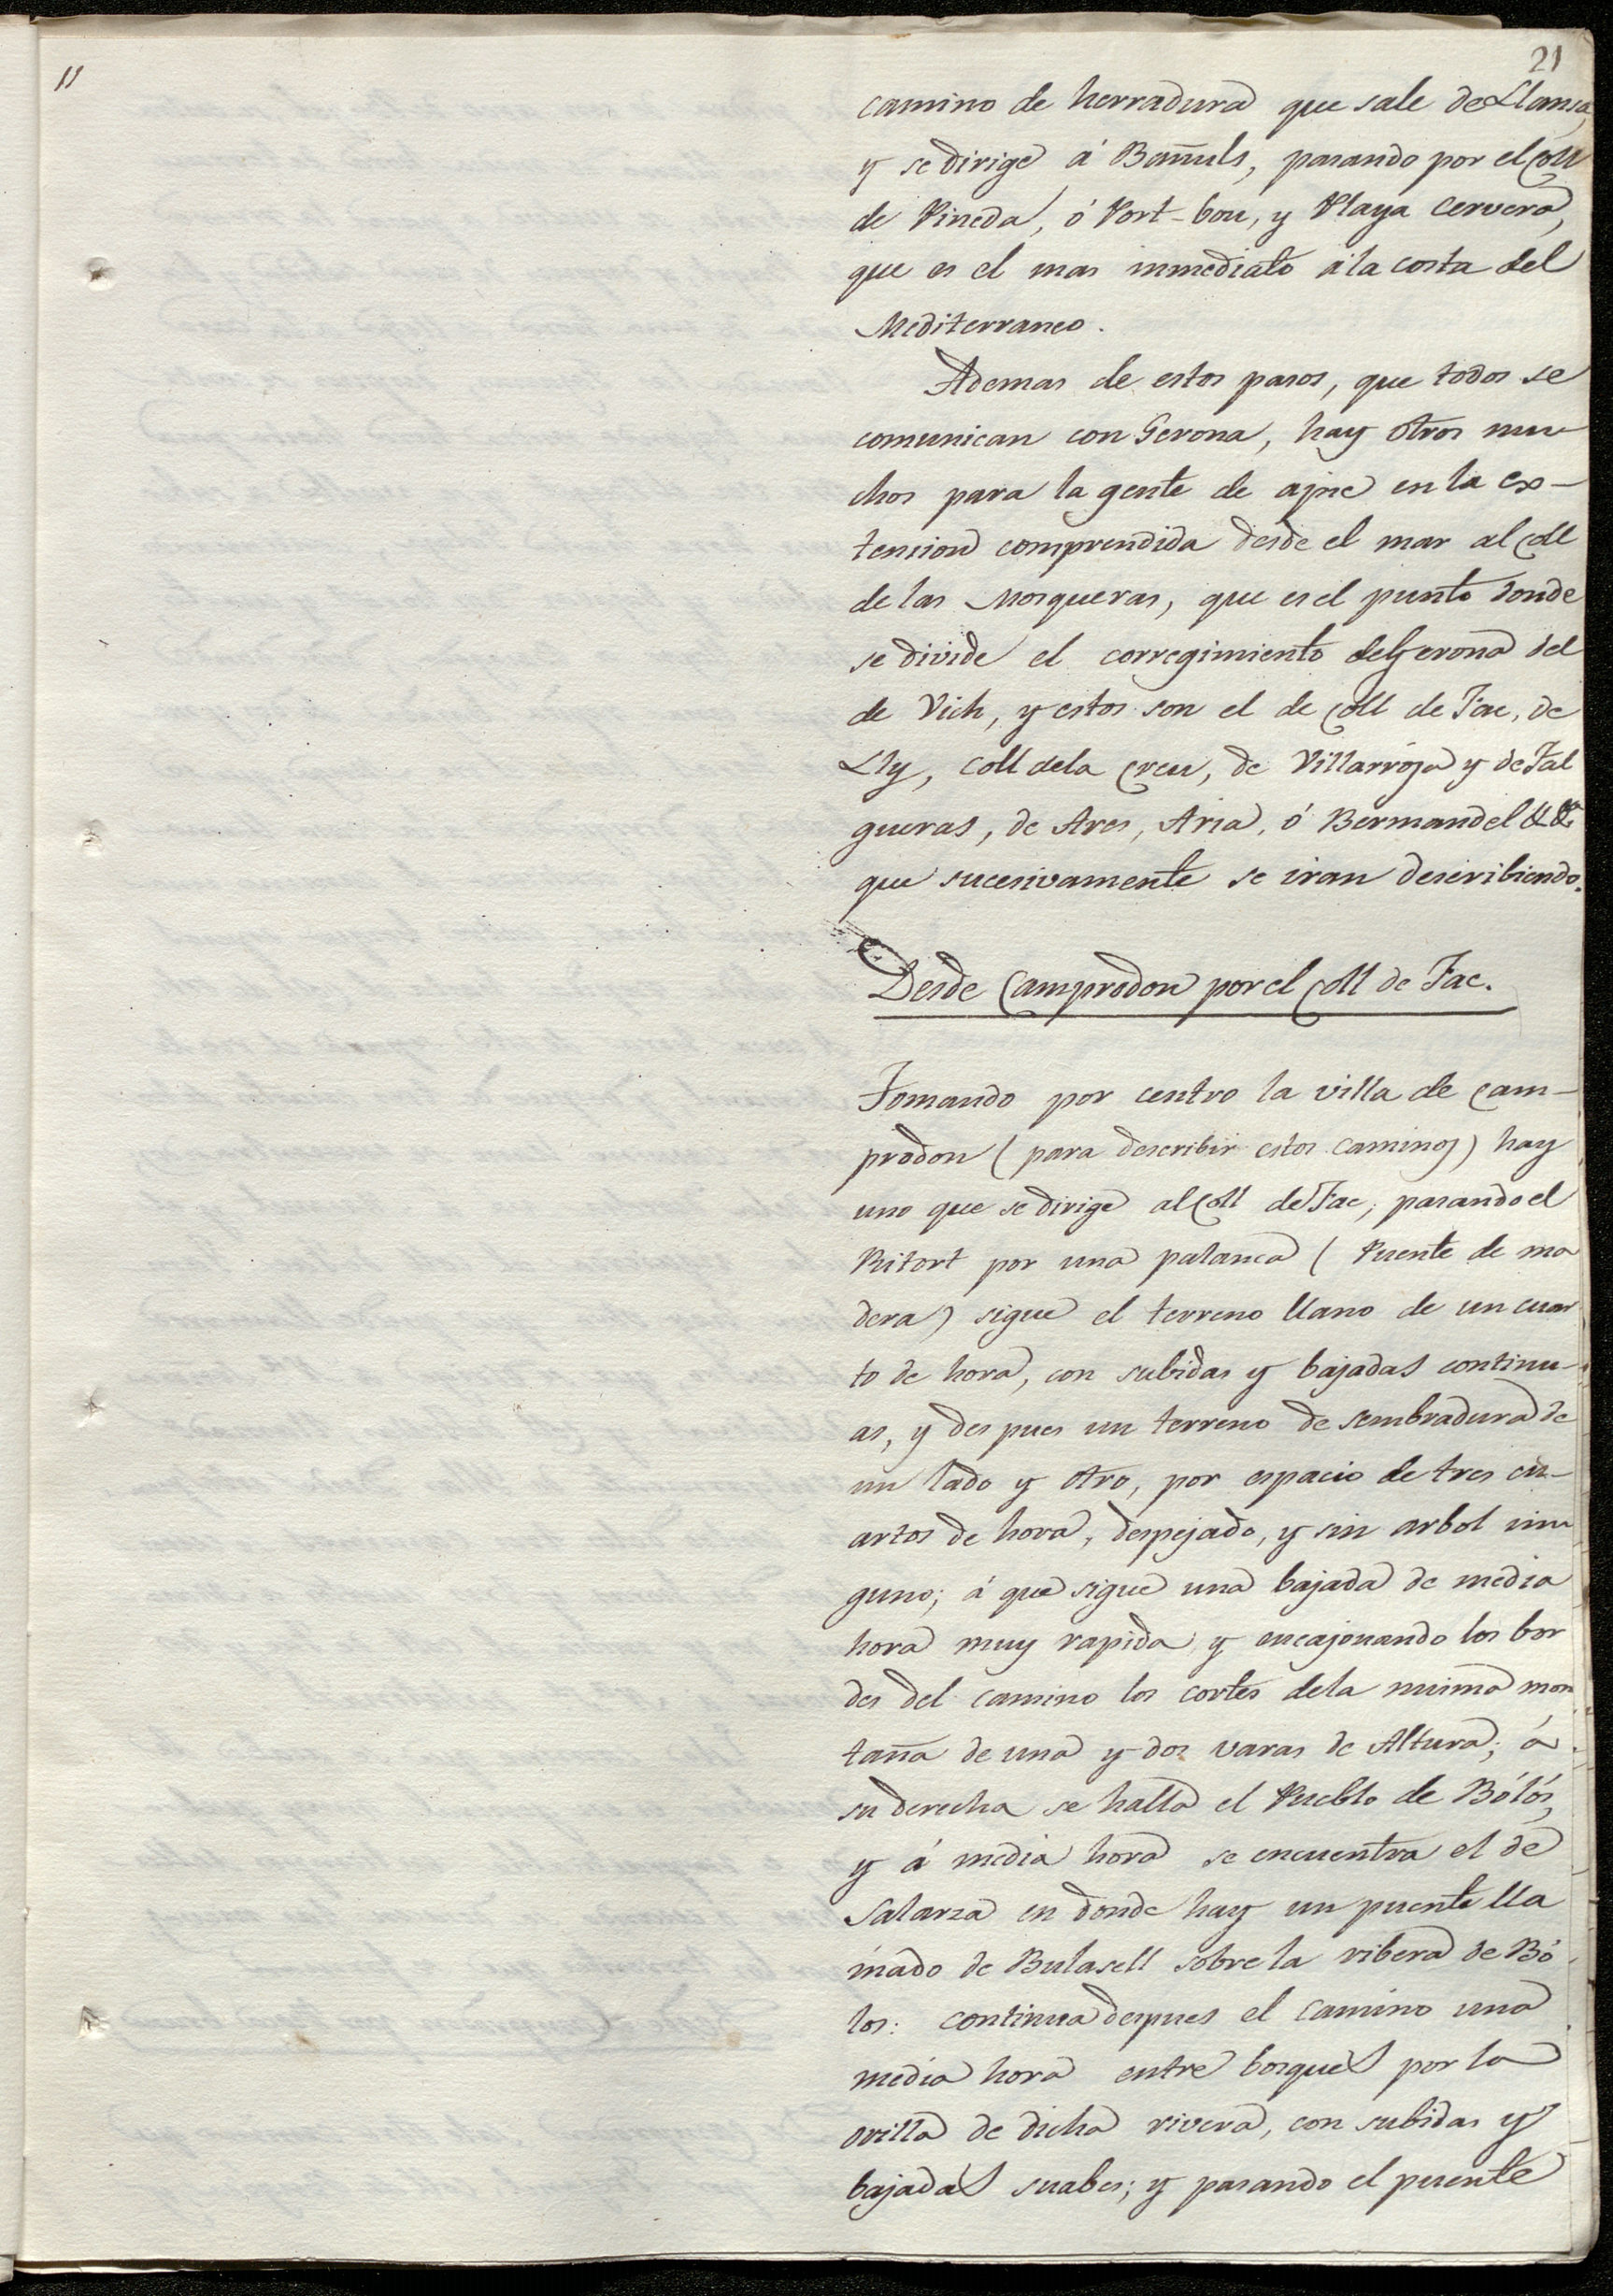 11
21
camino de herradura que sale de Llansa,
y se dirige á Bañuls, pasando por el Coll
de Pineda, ó Port-bou, y Playa Cervera,
que es el mas inmediato á la costa del
Mediterraneo.
Ademas de estos pasos, que todos se
comunican con Gerona, hay otros mu-
chos para la gente de apie en la ex-
tension comprendida desde el mar al Coll
de las Mosqueras, que es el punto donde
se divide el corregimiento de Gerona del
de Vich, y estos son el de Coll de Fac, de
Lly, Coll dela Creu, de Villarroja y de Fal
gueras, de Ares, Aria, ó Bermandel &.&.
que sucesivamente se iran describiendo.
Desde Camprodon por el Coll de Fac.
Tomando por centro la villa de Cam-
prodon (para describir estos caminos) hay
uno que se dirige al Coll de Fac; pasando el
Ritort por una palanca (Puente de ma
dera) sigue el terreno llano de un cuar
to de hora, con subidas y bajadas continu-
as, y despues un terreno de sembradura de
un lado y otro, por espacio de tres cu-
artos de hora, despejado, y sin arbol nin
guno; á que sigue una bajada de media
hora muy rapida y encajonando los bor
des del camino los cortes dela misma mon
taña de una y dos varas de Altura; á
su derecha se halla el Pueblo de Bólós,
y á media hora se encuentra el de
Salarza en donde hay un puente lla
mado de Bulasell sobre la ribera de Bó
los: continua despues el camino una
media hora entre bosques por la
orilla de dicha rivera, con subidas y
bajadas suabes; y pasando el puente